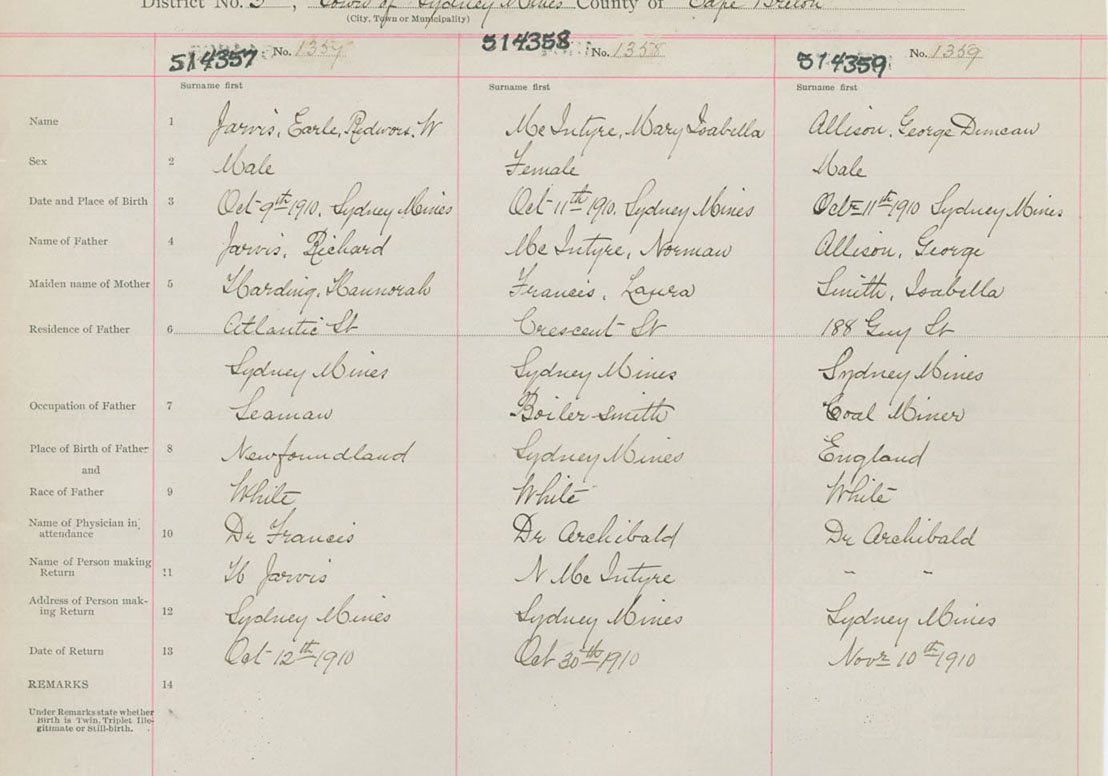 District No. 3, Town of Sydney Mines County of Cape Breton
(City, Town or Municipality)
514357 No. 1357 514358 No. 1358 514359 No. 1359
Surname first Surname first Surname first
Name 1 Jarvis, Earle, Redvors. W Mc Intyre, Mary Isabella Allison, George Duncan
Sex 2 Male Female Male
Date and Place of Birth 3 Oct 9th 1910, Sydney Mines Oct 11th 1910, Sydney Mines Oct 11th 1910 Sydney Mines
Name of Father 4 Jarvis, Richard Mc Intyre, Norman Allison, George
Maiden name of Mother 5 Harding, Hannorah Francis, Laura Smith, Isabella
Residence of Father 6 Atlantic St Crescent St 188 Guy St
Sydney Mines Sydney Mines Sydney Mines
Occupation of Father 7 Seaman Boiler smith Coal Miner
Place of Birth of Father 8 Newfoundland Sydney Mines England
and
Race of Father 9 White White White
Name of Physician in
attendance 10 Dr Francis Dr Archibald Dr Archibald
Name of Person making
Return 11 H Jarvis N Mc Intyre " "
Address of Person mak-
ing Return 12 Sydney Mines Sydney Mines Sydney Mines
Date of Return 13 Oct 12th 1910 Oct 30th 1910 Novr 10th 1910
REMARKS 14
Under Remarks state whether
Birth is Twin, Triplet Ille-
gitimate or Still-birth.